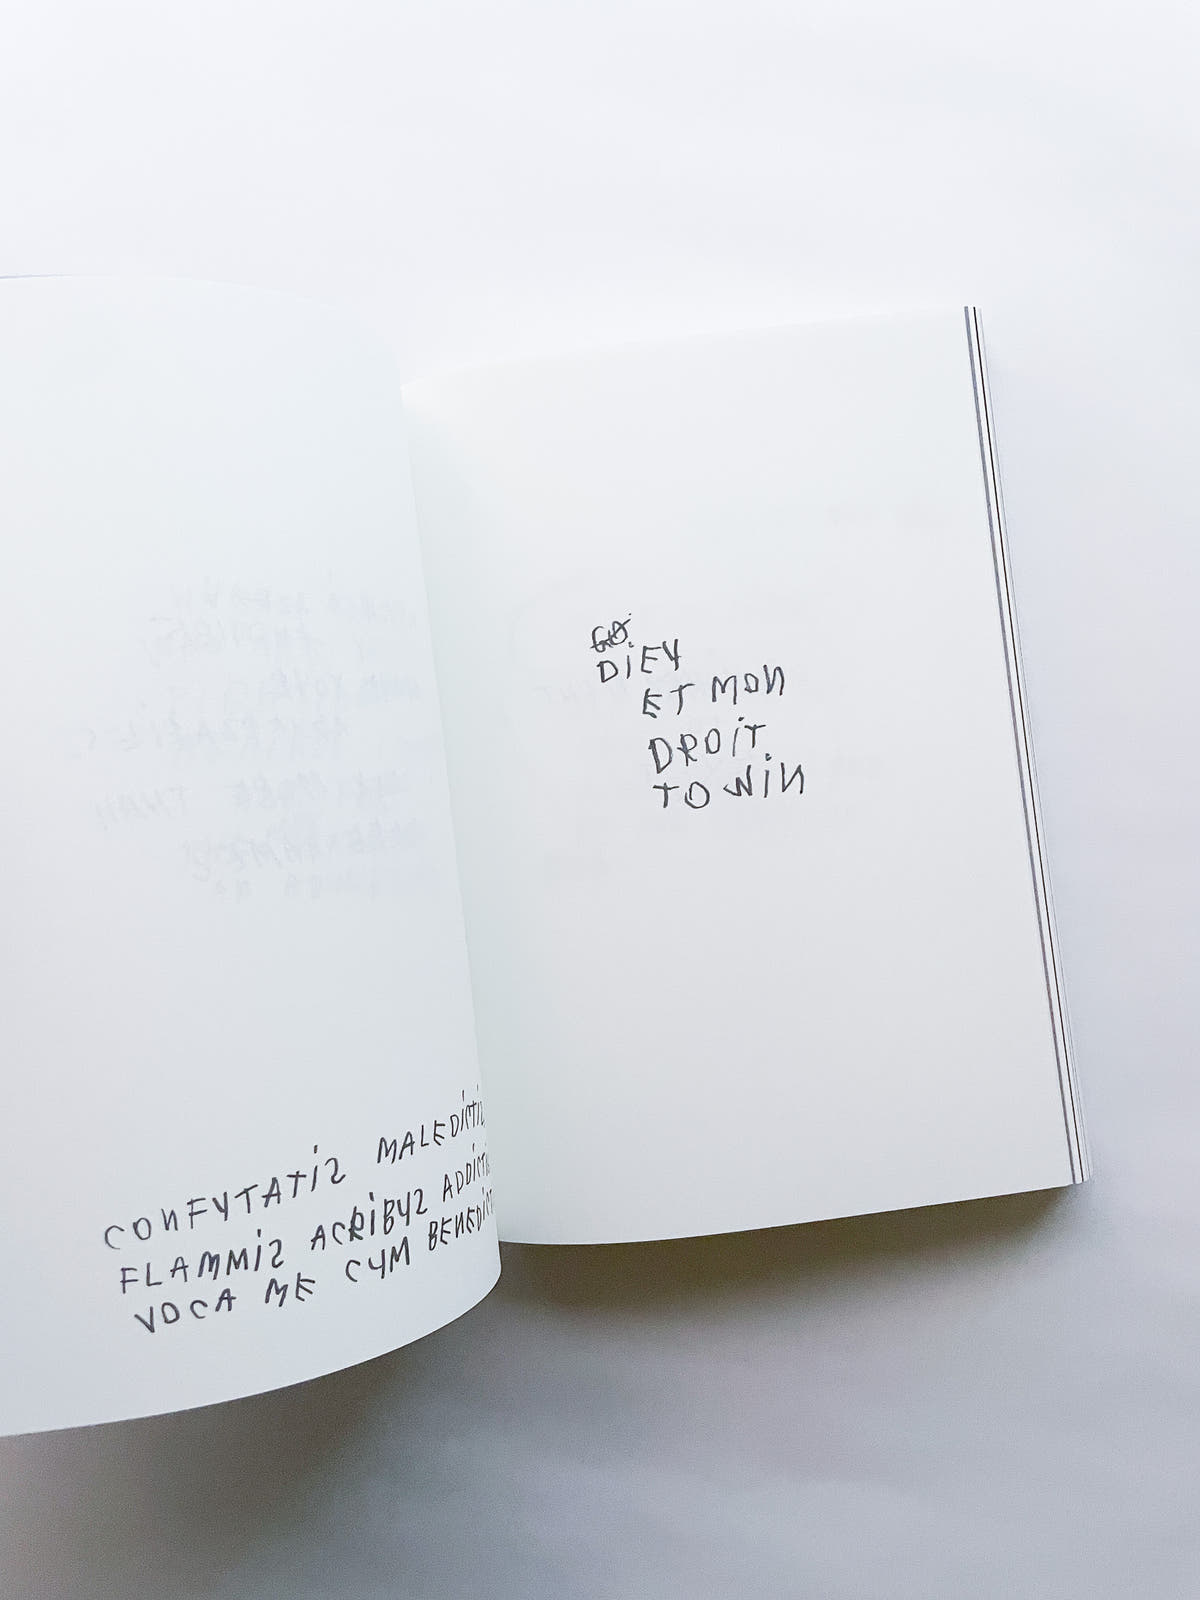 CONFUTATIS MALEDICTIS
FLAMMIS ACRIBUS ADDICTI
VOCA ME CUM BENEDICT
DIEU
ET MON
DROIT
TO WIN